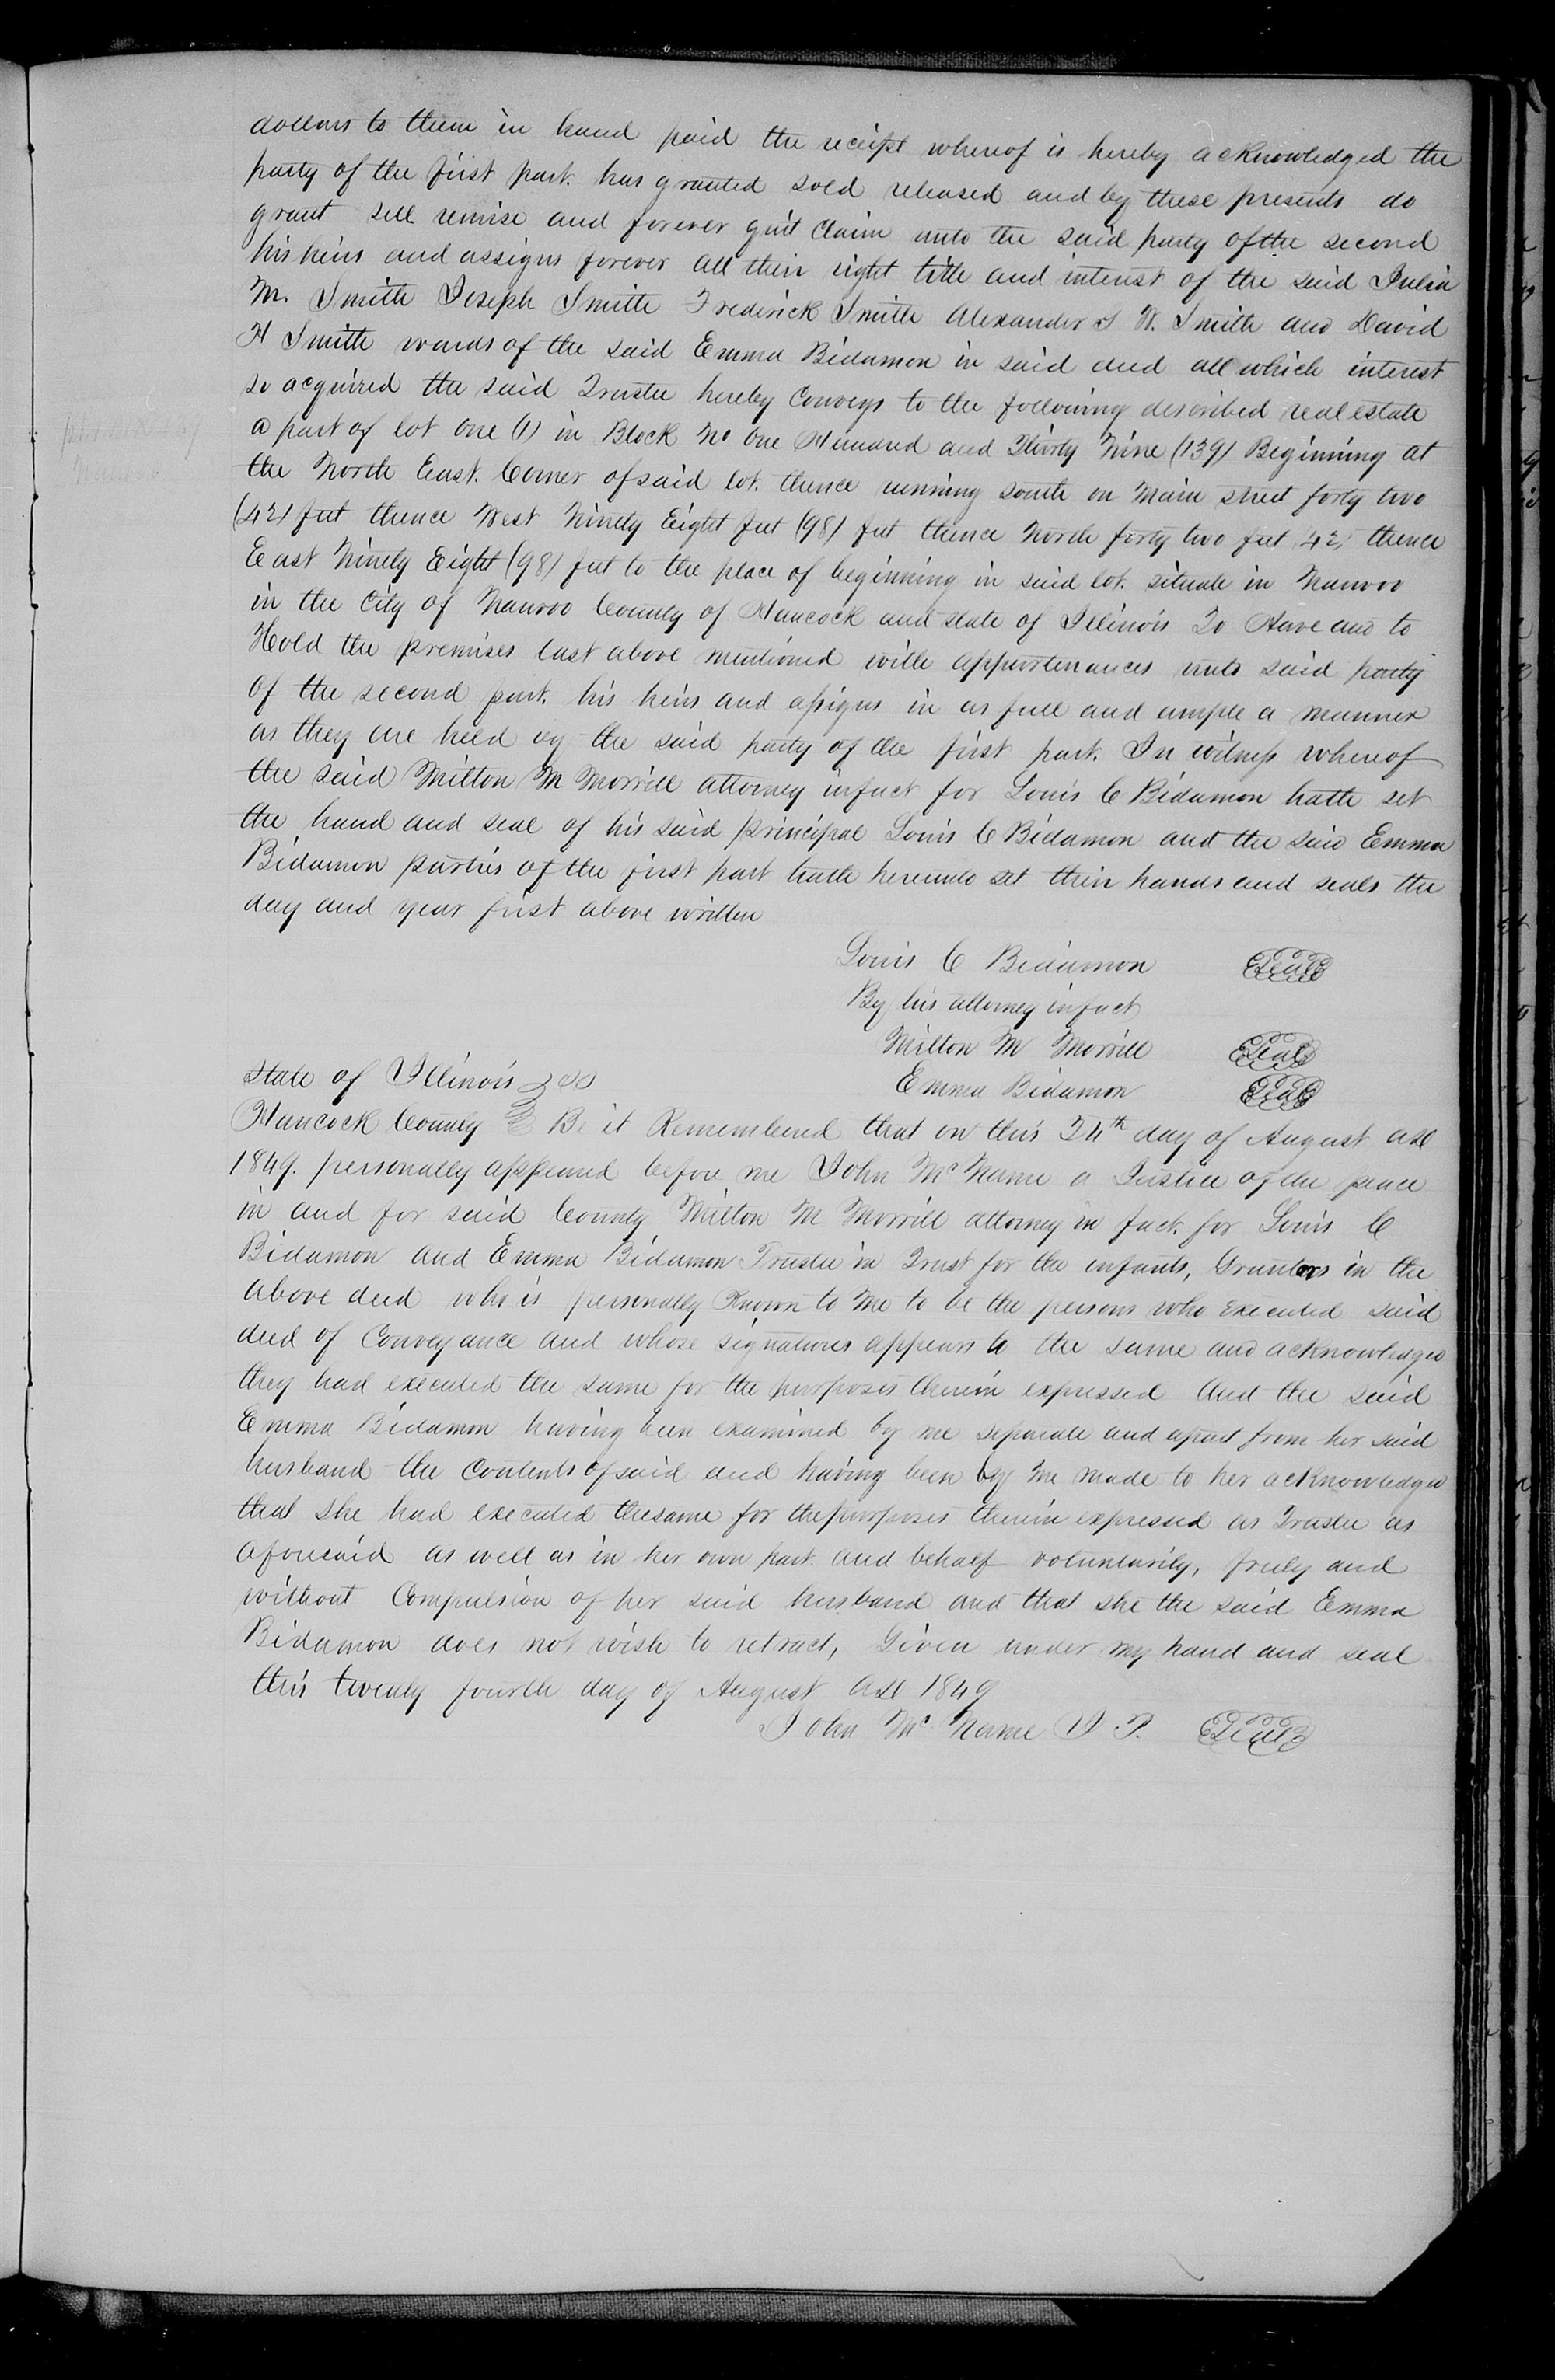 dollars to them in hand paid the receipt whereof is hereby acknowledged the
party of the first part. has granted sold released and by these presents do
grant sell remise and forever quit Claim unto the said party of the second
his heirs and assigns forever all their right title and interest of the said Julia
M. Smith Joseph Smith Frederick Smith Alexander S W. Smith and David
H Smith wards of the said Emma Bidamon in said deed all which interest
so acquired the said Trustee hereby Conveys to the following described real estate
a part of lot one (1) in Block No One Hundred and Thirty Nine (139) Beginning at
the North East. Corner of said lot. thence running south on Main street forty two
(42) feet thence West Ninety Eight feet (98) feet thence North forty two feet 42, thence
East Ninety Eight (98) feet to the place of beginning in said lot. situate in Nauvoo
in the City of Nauvoo County of Hancock and state of Illinois To Have and to
Hold the premises last above mentioned with appurtenances unto said party
of the second part. his heirs and assigns in as full and ample a manner
as they are held by the said party of the first part. In witness whereof
the said Milton M Morrill attorney infact for Louis C Bidamon hath set
the hand and seal of his said principal Louis C Bidamon and the said Emma
Bidamon parties of the first part hath hereunto set their hands and seals the
day and year first above written
Louis C Bidamon Seal
By his attorney infact
Milton M Morrill Seal
Emma Bidamon Seal
State of Illinois ss
Hancock County Be it Remembered that on this 24th day of August AD
1849. personally appeared before me John Mc Name a Justice of the peace
in and for said County Milton M Morrill attorney in fact. for Louis C
Bidamon and Emma Bidamon Trustee in Trust for the infants, Grantors in the
above deed who is personally Known to Me to be the persons who executed said
deed of Conveyance and whose signatures appears to the same and acknowledged
they had executed the same for the purposes therein expressed And the said
Emma Bidamon having been examined by me separate and apart from her said
husband the Contents of said deed having been by me made to her acknowledged
that she had executed the same for the purposes therein expressed as Trustee as
aforesaid as well as in her own part. and behalf voluntarily, freely and
without Compulsion of her said husband and that she the said Emma
Bidamon does not wish to retract, Given under my hand and seal
this twenty fourth day of August AD 1849
John Mc Name J. P. Seal